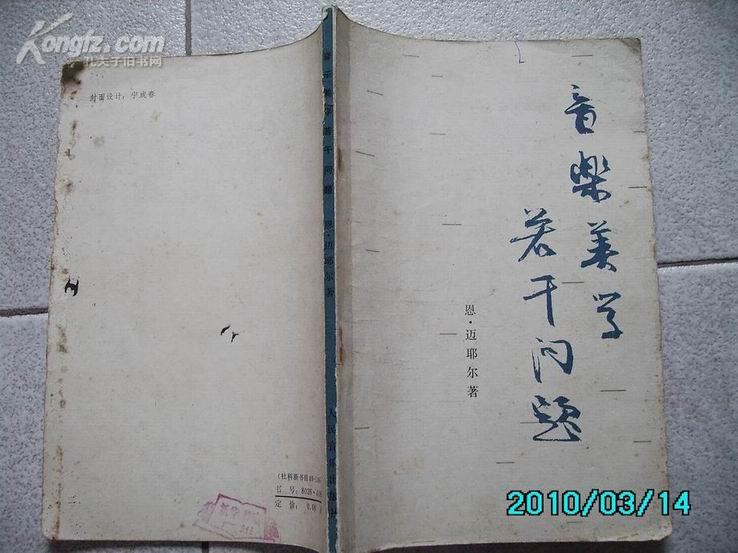 Kongfz.com
孔夫子旧书网
封面设计：宁成春
音乐美学若干问题
恩·迈耶尔著
人民音乐出版社
音樂美学
若干问题
恩·迈耶尔著
书号：8026·
定价：0.
2010/03/14